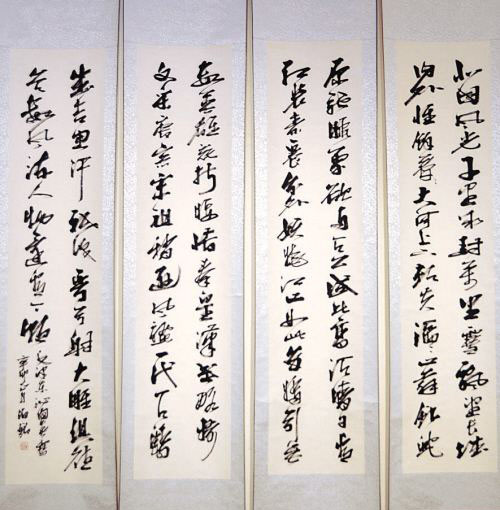 北国风光千里冰封万里雪飘望长城
内外惟馀莽莽大河上下顿失滔滔山舞银蛇
原驰蜡象欲与天公试比高须晴日看
红装素裹分外妖娆江山如此多娇引无
数英雄竞折腰惜秦皇汉武略输
文采唐宗宋祖稍逊风骚一代天骄
成吉思汗只识弯弓射大雕俱往
矣数风流人物还看今朝 毛泽东沁园春雪